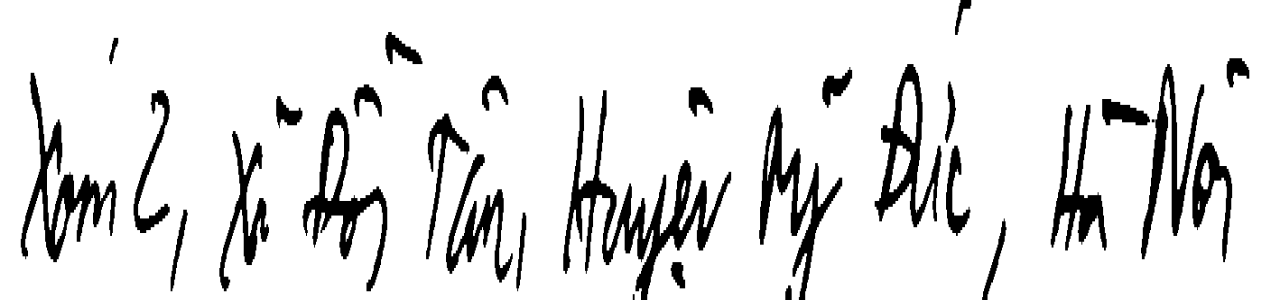 Xóm 2, Xã Đồng Tân, Huyện Mỹ Đức, Hà Nội